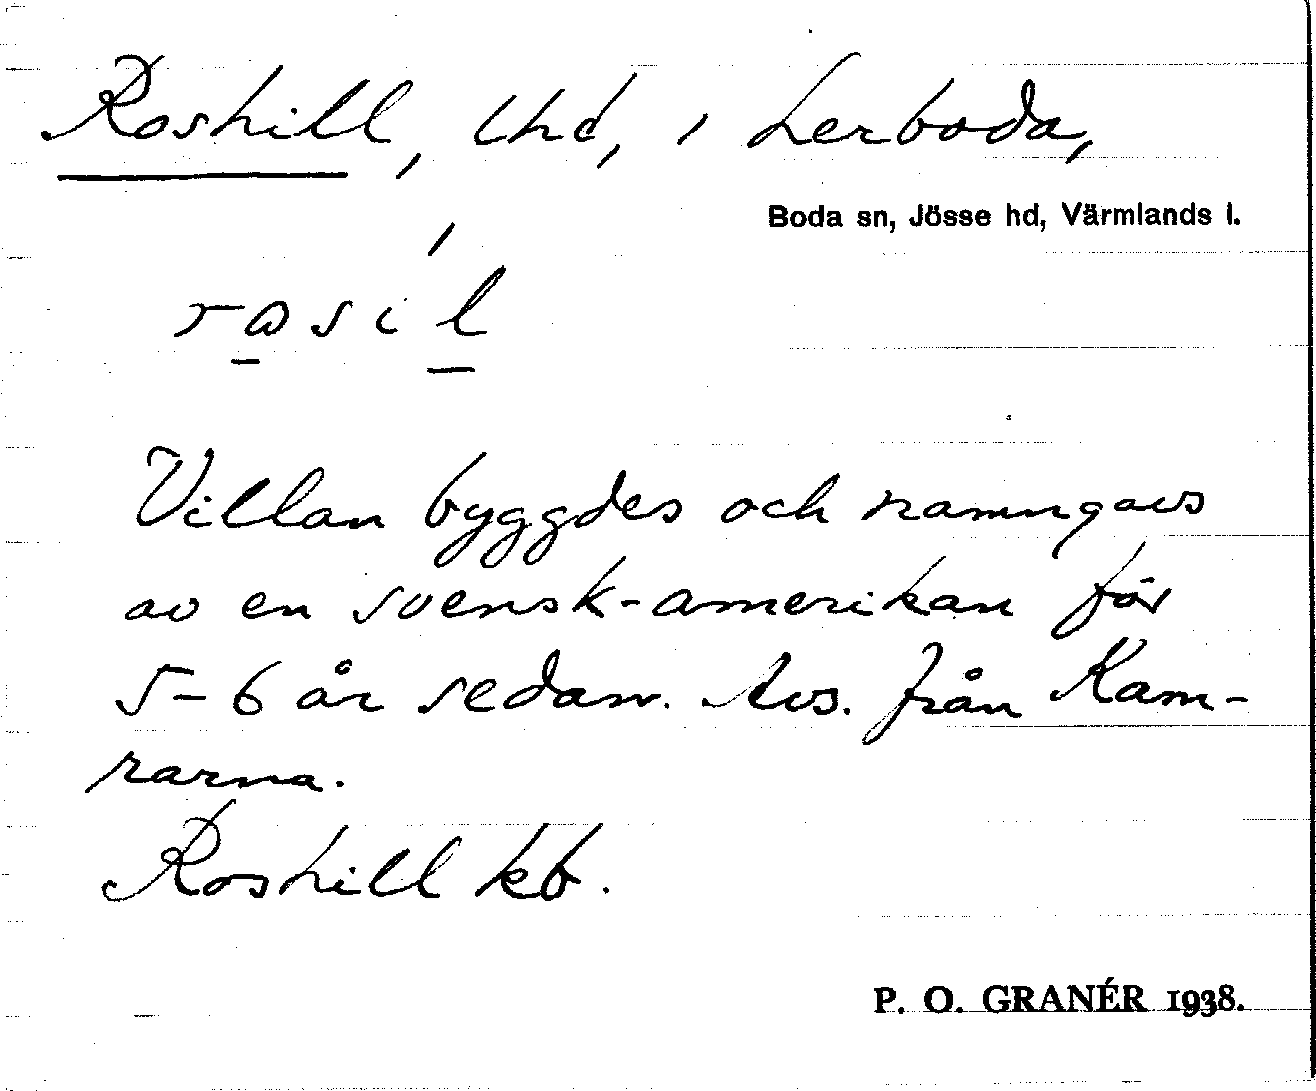 Roshill, lhd, i Lerboda,
Boda sn, Jösse hd, Värmlands l.
rosil
Villan byggdes och namngavs
av en svensk-amerikan för
5-6 år sedan. Avs. från Kam-
rarna.
Roshill kb.
P. O. GRANÉR 1938.